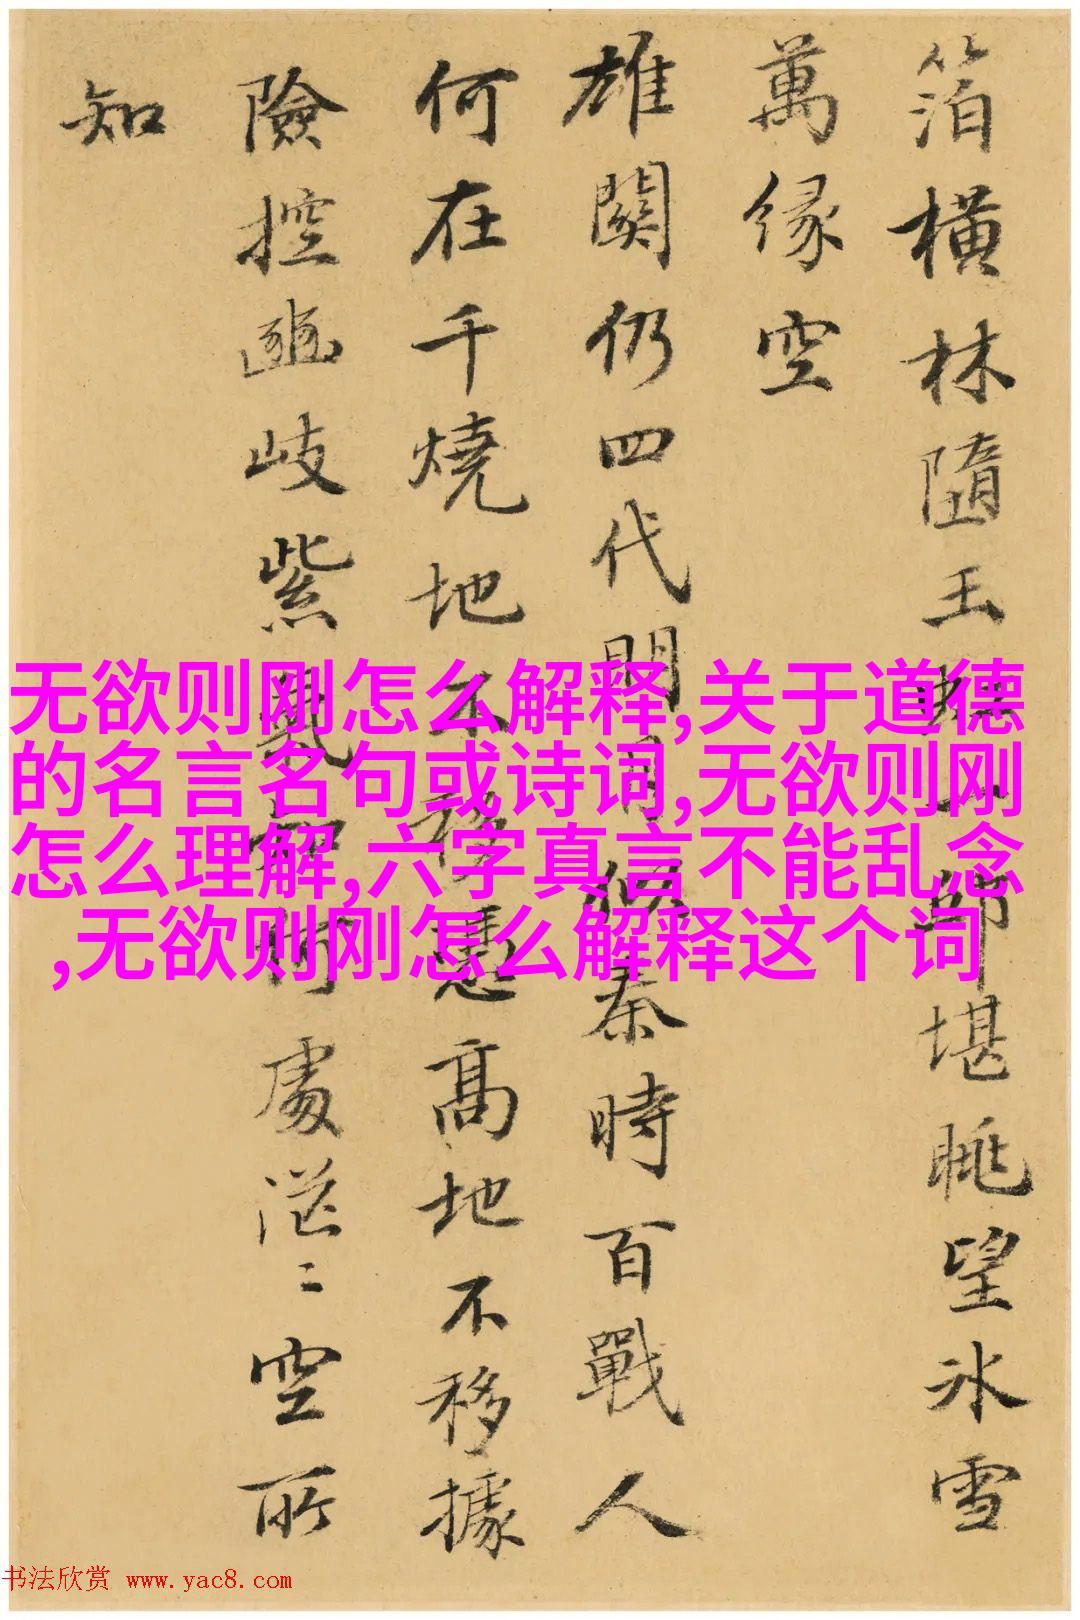 箔橫林隨玉堪眺望氷雪
萬緣空
雄關仍四代關月秦時百戰人
何在千燒地不移憑高地不移據
險控豳岐紫氣何處茫〻空所
知
无欲则刚怎么解释,关于道德
的名言名句或诗词,无欲则刚
怎么理解,六字真言不能乱念
,无欲则刚怎么解释这个词
书法欣赏 www.yac8.com